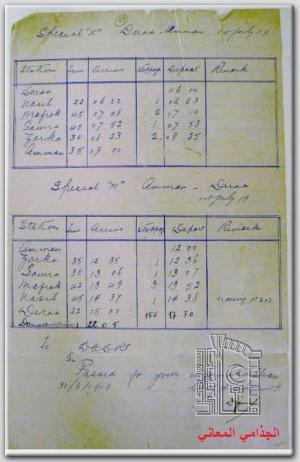 Special "K" Deraa - Amman 1st July 19
Station Time Arrive Stoppage Depart Remark
Deraa 06 00
Nasib 22 06 22 1 06 23
Mafrak 45 07 08 2 07 10
Samra 42 07 52 1 07 53
Zarka 30 08 23 2 08 25
Amman 35 09 00
Special "M" Amman - Deraa
1st July 19
Station Time Arrive Stoppage Depart Remark
Amman 12 00
Zarka 35 12 35 1 12 36
Samra 30 13 06 1 13 07
Mafrak 42 13 49 3 13 52
Nasib 45 14 37 1 14 38
Deraa 22 15 00 150 17 30
22 05
To
Passed for your
30/6/1919
الجذامي المعاني